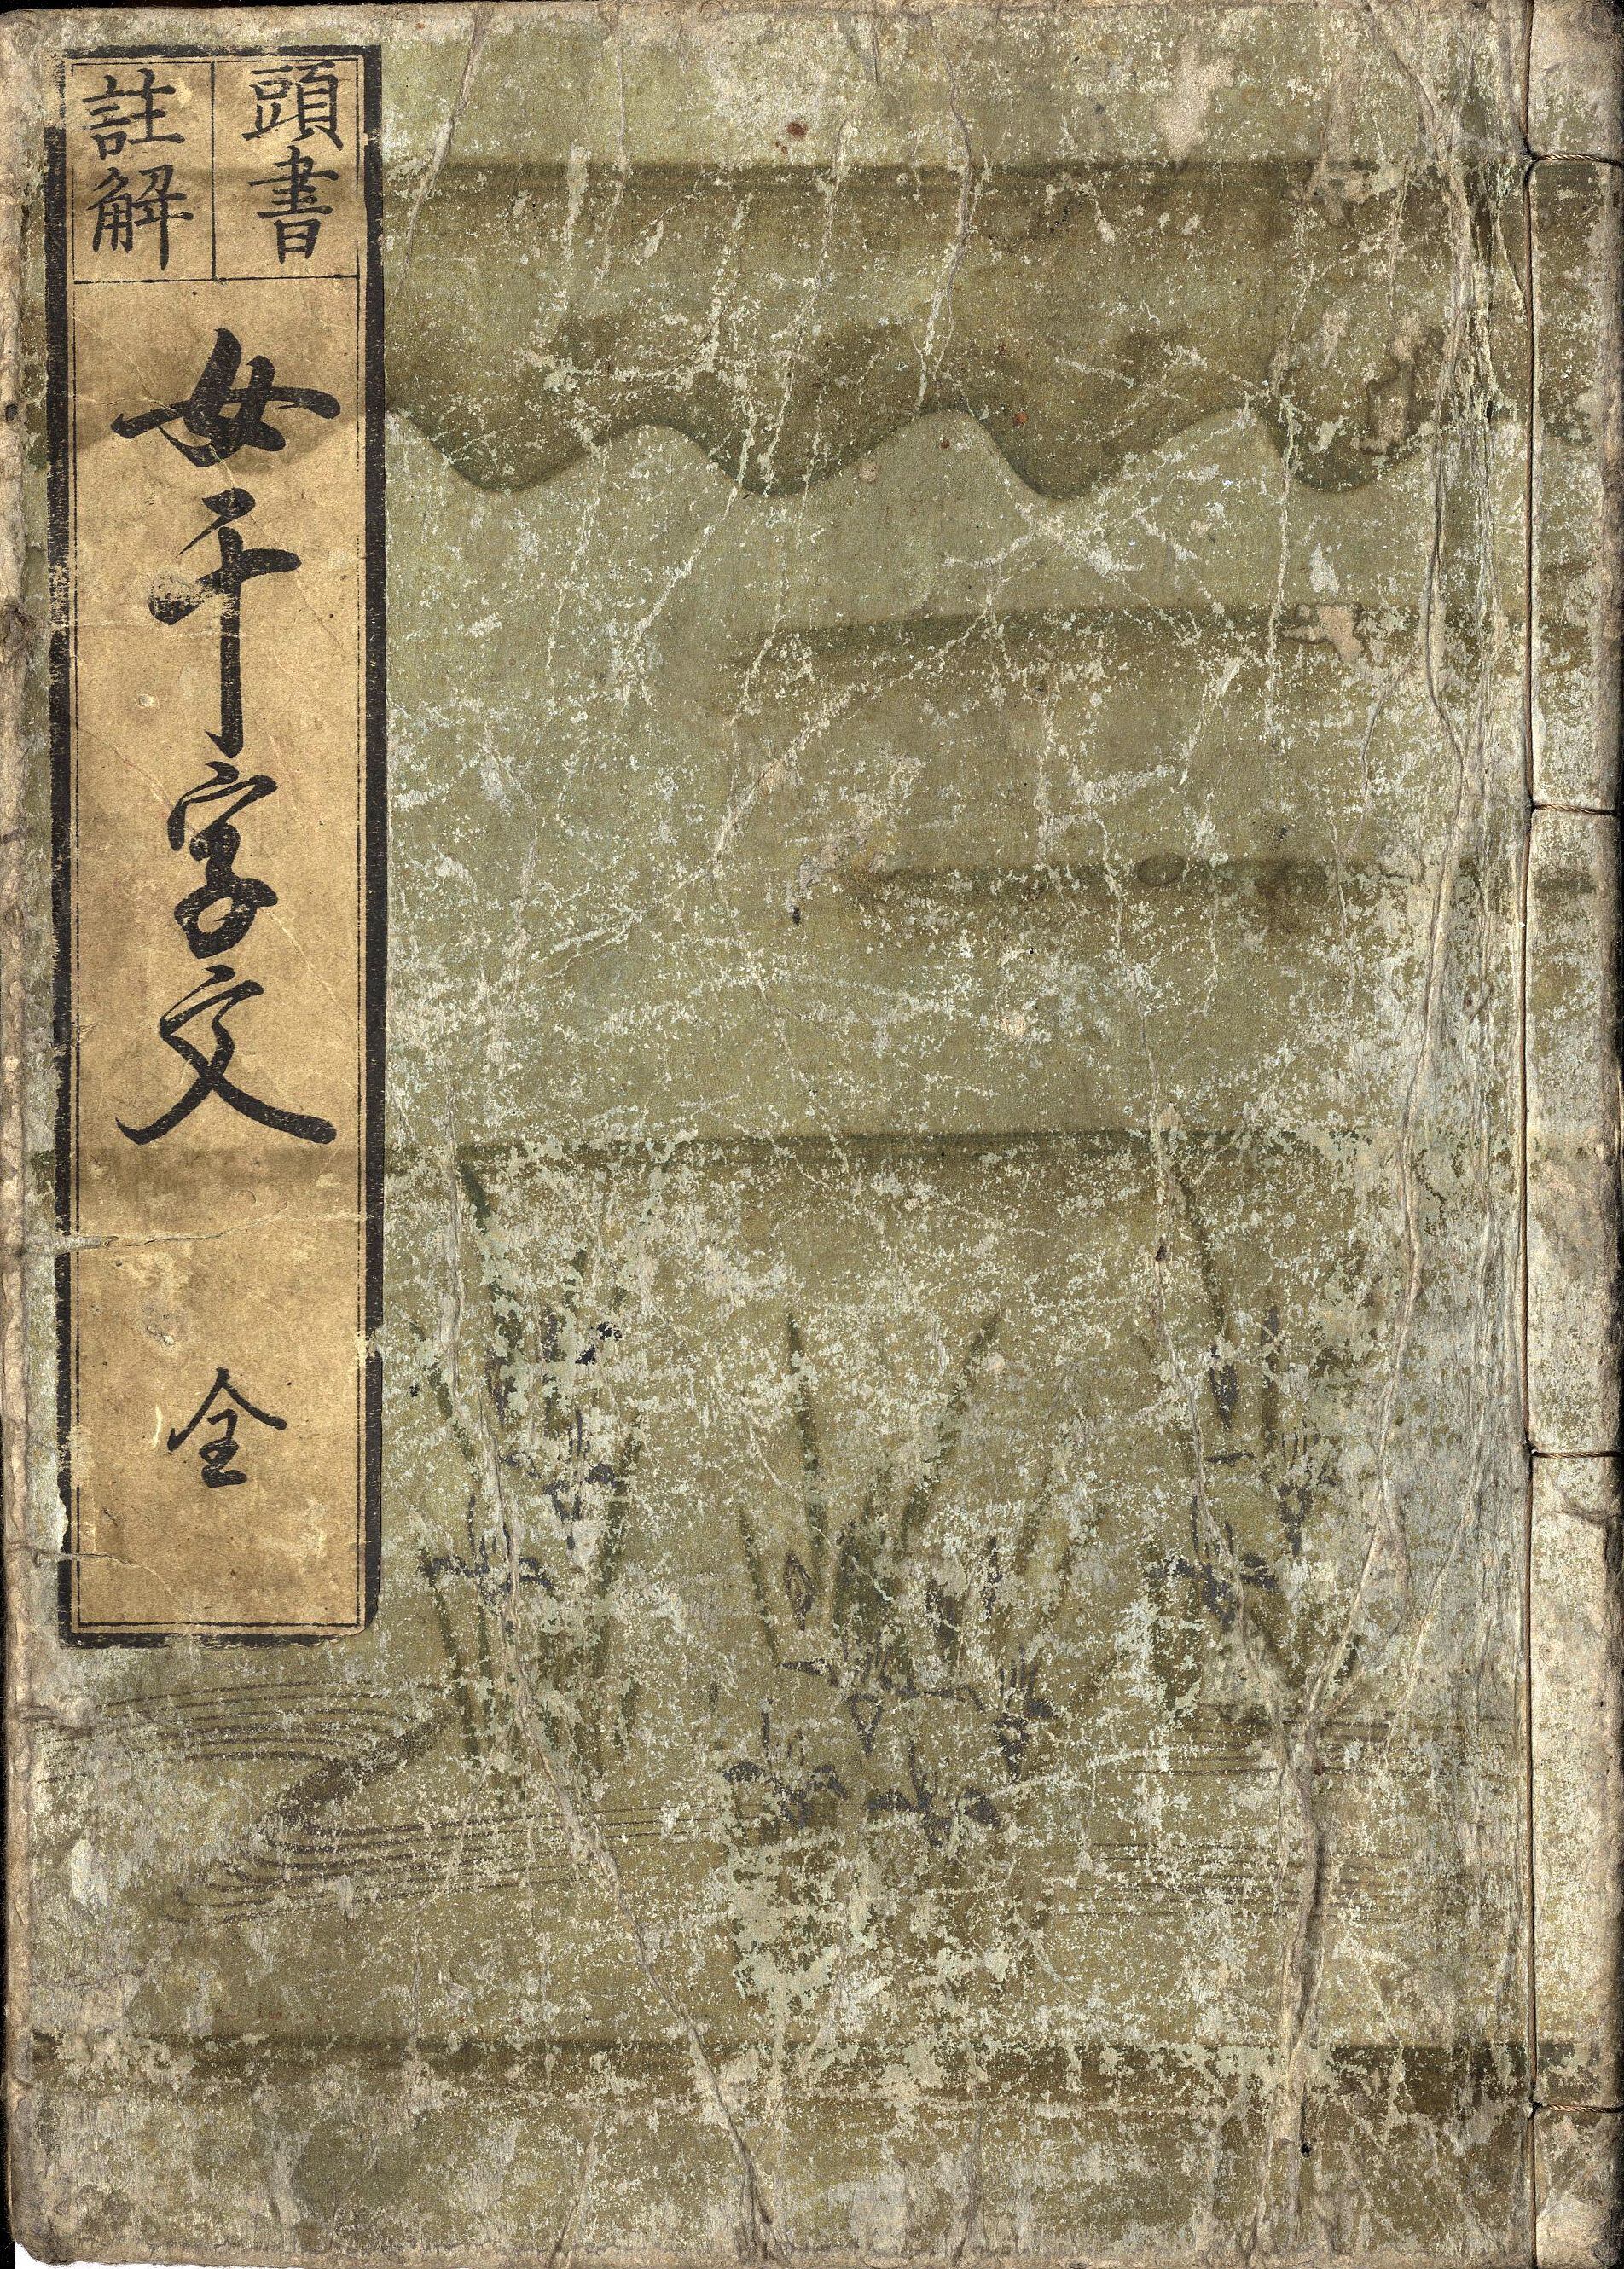 頭書
註解
女千字文
全